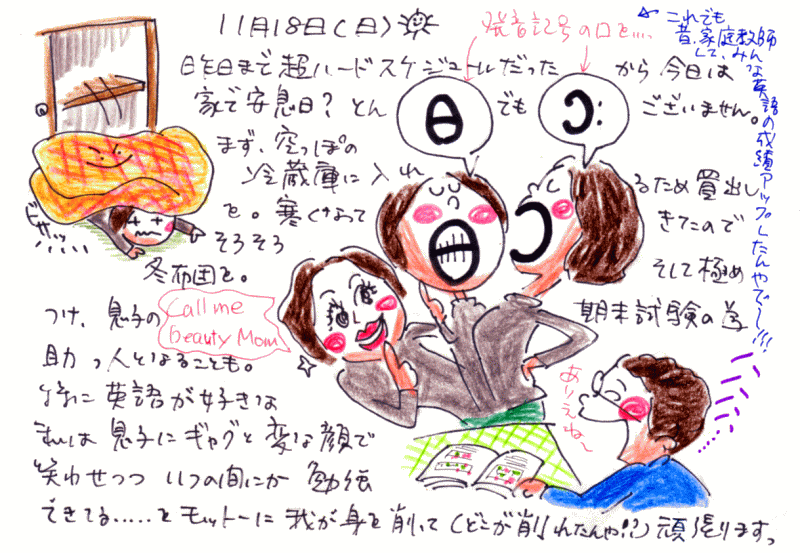 11月18日(日)
発音記号の口を....
これでも
昔、家庭教師
して、みんな英語の成績アップしたんやで〜!!!
昨日まで超ハードスケジュールだった から今日は
家で安息日?とん でも ございません。
θ
ɔ:
まず、空っぽの
冷蔵庫に入れ るため買出し
を。寒くなって きたので
そろそろ
冬布団を。 そして極め
ドサッ....
つけ、息子の 期末試験の
助っ人となることも。
Call me
beauty Mom
特に英語が好きな
私は息子にギャグと変な顔で
笑わせつついつの間にか勉強
できてる.....とモットーに我が身を削って(どこが削れたんや!?)頑張ります。
ありえね〜